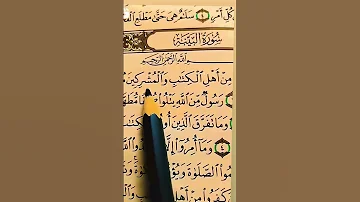 كُلِّ أَمْرٍ ٤ سَلَٰمٌ هِىَ حَتَّىٰ مَطْلَعِ
سُورَةُ البَيِّنَةِ
بِسْمِ اللَّهِ الرَّحْمَٰنِ الرَّحِيمِ
مِنْ أَهْلِ ٱلْكِتَٰبِ وَٱلْمُشْرِكِينَ
رَسُولٌ مِّنَ ٱللَّهِ يَتْلُوا۟
وَمَا تَفَرَّقَ ٱلَّذِينَ
وَمَآ أُمِرُوٓا۟ إِلَّا
ٱلصَّلَوٰةَ
كَفَرُوا۟ مِنْ